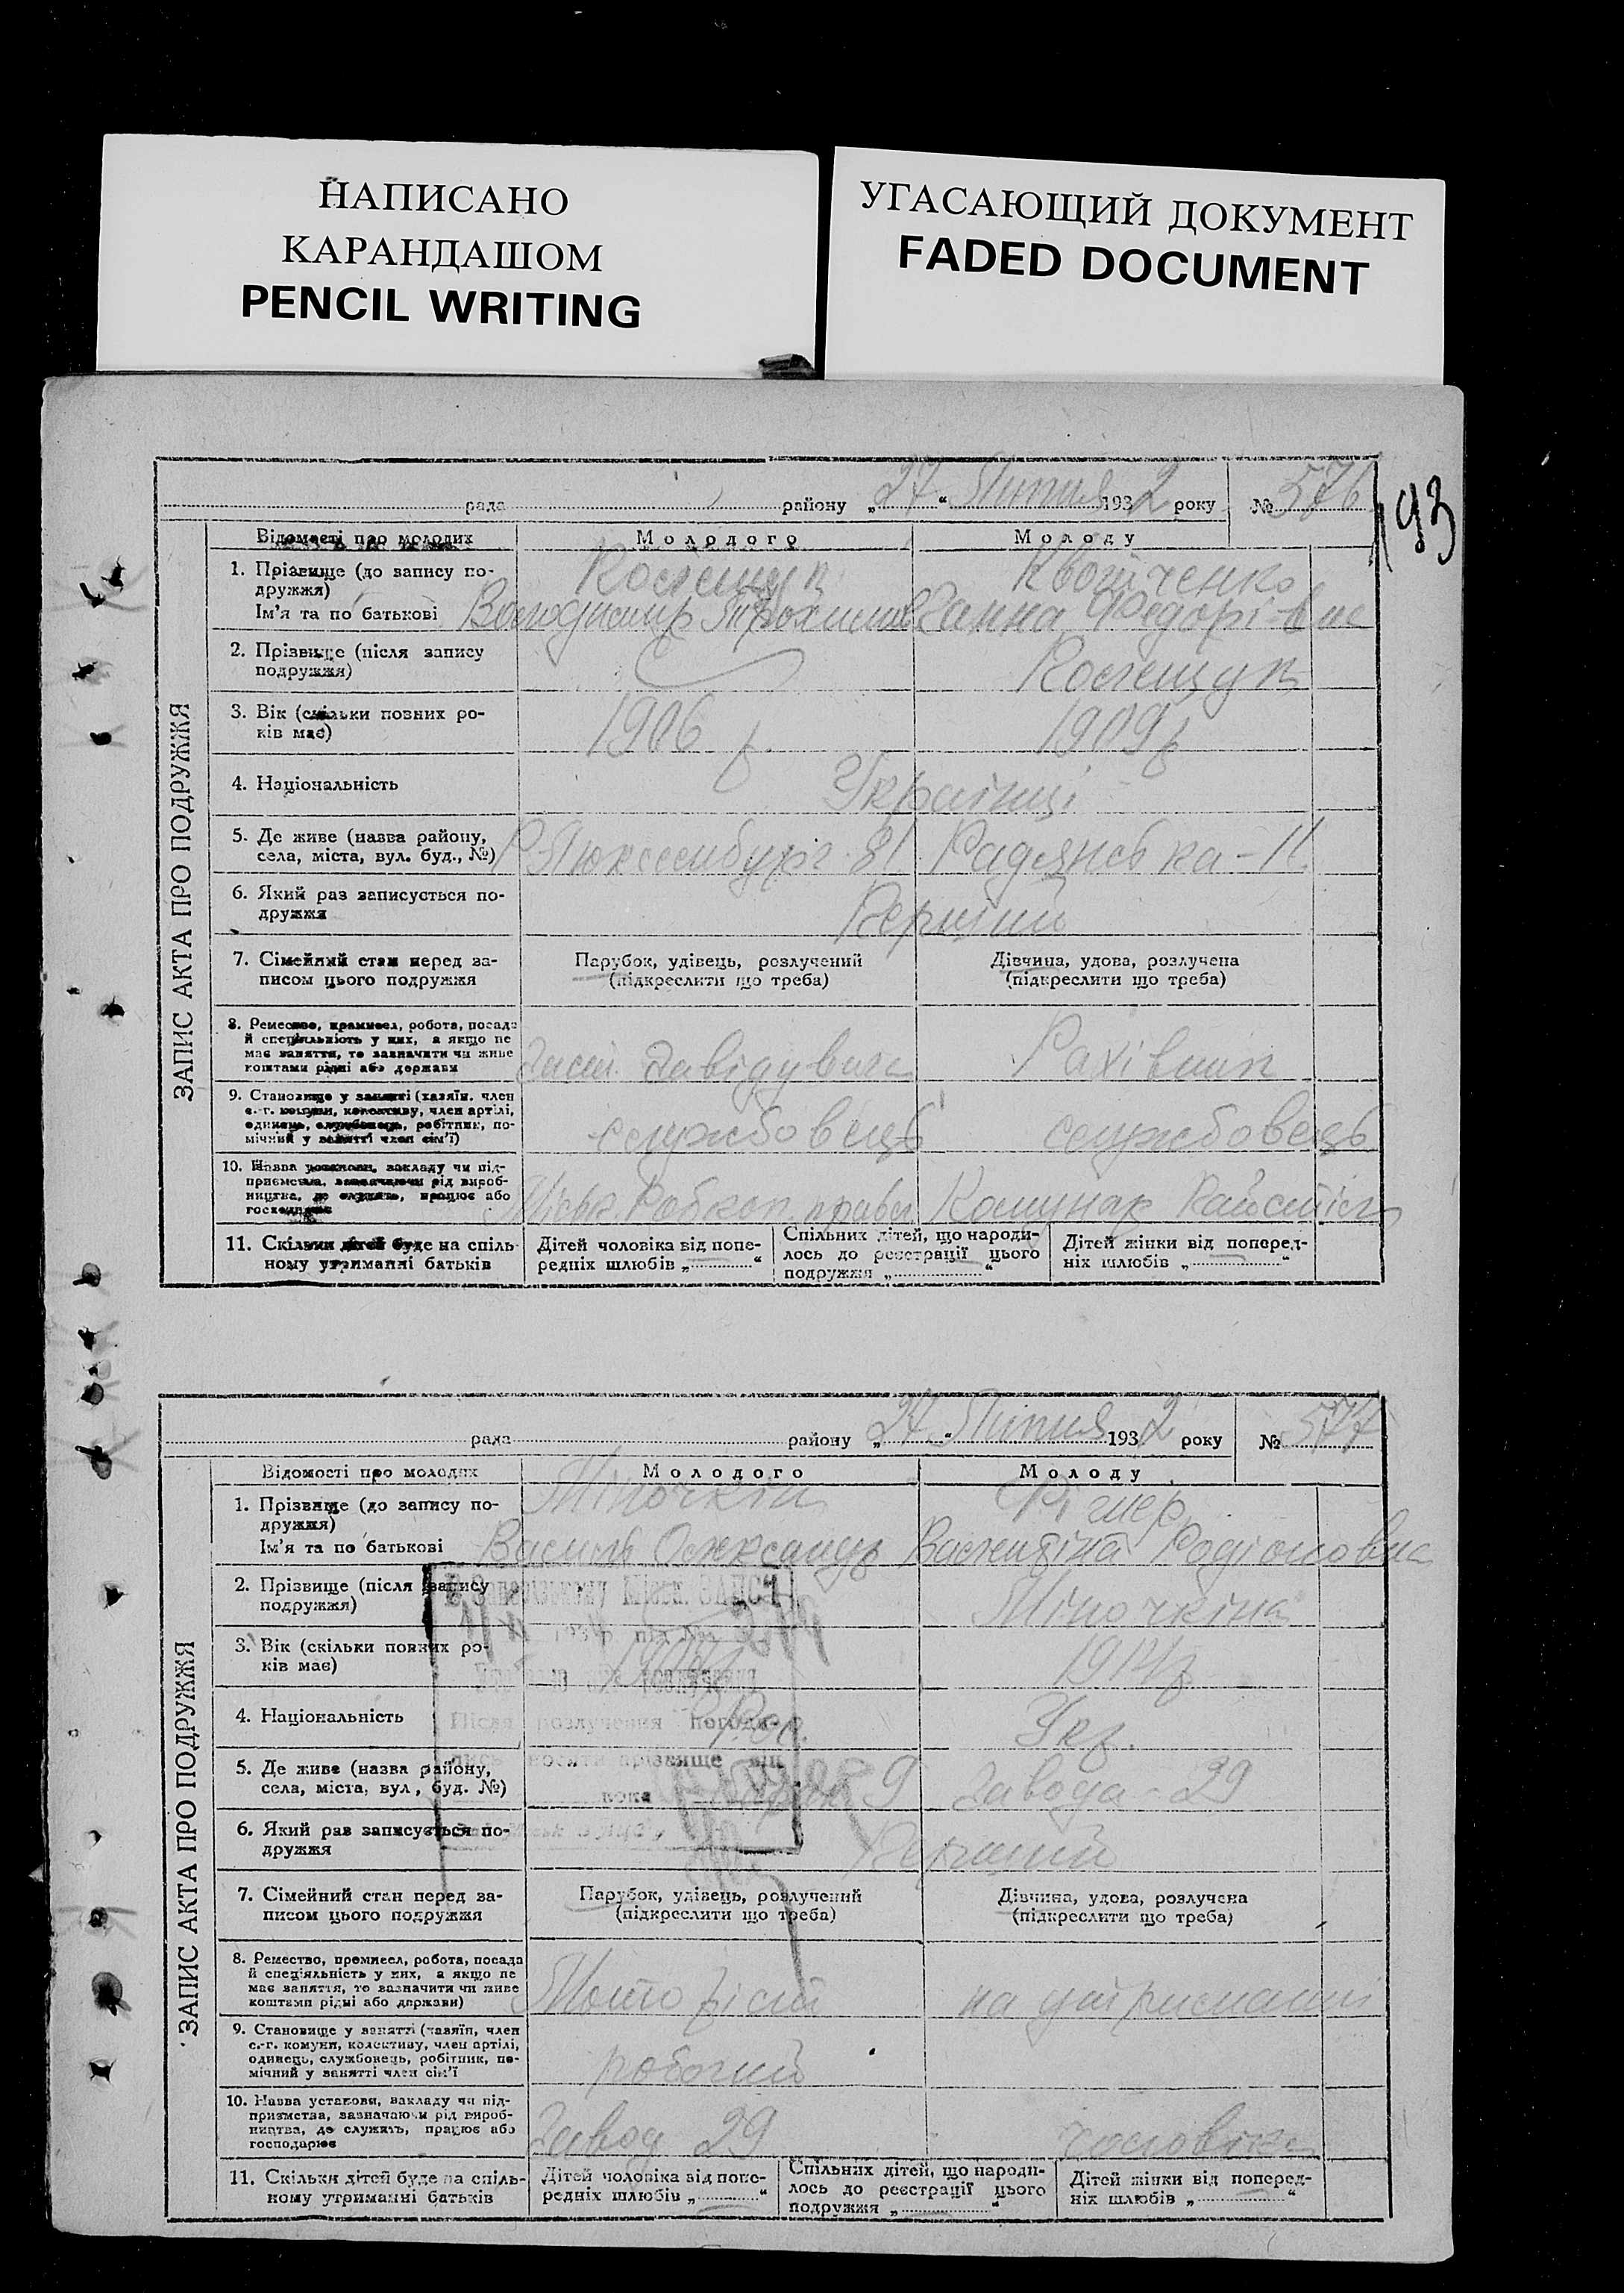 НАПИСАНО
КАРАНДАШОМ
PENCIL WRITING
УГАСАЮЩИЙ ДОКУМЕНТ
FADED DOCUMENT
193
ЗАПИС АКТА ПРО ПОДРУЖЖЯ
рада району „27“ Липня 1932 року № 576
Відомості про молодих Молодого Молоду
1. Прізвище (до запису по-
дружжя)
Ім'я та по батькові
Володимир Ганна Федорівна
2. Прізвище (після запису
подружжя)
3. Вік (скільки повних ро-
ків має)
1906 р. 1909 р
4. Національність
Українці
5. Де живе (назва району,
села, міста, вул. буд., №)
Р. Люксембург 81 Радянська-11
6. Який раз записується по-
дружжя
Перший
7. Сімейний стан перед за-
писом цього подружжя
Парубок, удівець, розлучений
(підкреслити що треба)
Дівчина, удова, розлучена
(підкреслити що треба)
8. Ремество, промисел, робота, посада
й спеціяльність у них, а якщо не
має заняття, то зазначити чи живе
коштами рідні або держави
Заст. Завідувача Рахівник
9. Становище у занятті (хазяїн, член
с.-г. комуни, колективу, член артілі,
одинець, службовець, робітник, по-
мічний у занятті член сім'ї)
службовець службовець
10. Назва установи, закладу чи під-
приємства, зазначаючи рід вироб-
ництва, де служить, працює або
господарює
Комунар
11. Скільки дітей буде на спіль-
ному утриманні батьків
Дітей чоловіка від попе-
редніх шлюбів „ “
Спільних дітей, що народи-
лось до реєстрації цього
подружжя „ “
Дітей жінки від поперед-
ніх шлюбів „ “
ЗАПИС АКТА ПРО ПОДРУЖЖЯ
рада району „27“ Липня 1932 року № 577
Відомості про молодих Молодого Молоду
1. Прізвище (до запису по-
дружжя)
Ім'я та по батькові
Міночкін
Василь Олександр Валентіна Родіоновна
2. Прізвище (після запису
подружжя)
Міночкіна
3. Вік (скільки повних ро-
ків має)
4. Національність
Рос. Укр.
Після розлучення погоди-
лись носити прізвище він
вона
5. Де живе (назва району,
села, міста, вул., буд. №)
9 Завода - 29
6. Який раз записується по-
дружжя
Перший
7. Сімейний стан перед за-
писом цього подружжя
Парубок, удівець, розлучений
(підкреслити що треба)
Дівчина, удова, розлучена
(підкреслити що треба)
8. Ремество, промисел, робота, посада
й спеціяльність у них, а якщо не
має заняття, то зазначити чи живе
коштами рідні або держави)
Моторіст на утриманні
9. Становище у занятті (хазяїн, член
с.-г. комуни, колективу, член артілі,
одинець, службовець, робітник, по-
мічний у занятті член сім'ї
робочий
10. Назва установи, закладу чи під-
приємства, зазначаючи рід вироб-
ництва, де служить, працює або
господарює
Завод 29 чоловіка
11. Скільки дітей буде на спіль-
ному утриманні батьків
Дітей чоловіка від попе-
редніх шлюбів „ “
Спільних дітей, що народи-
лось до реєстрації цього
подружжя „ “
Дітей жінки від поперед-
ніх шлюбів „ “